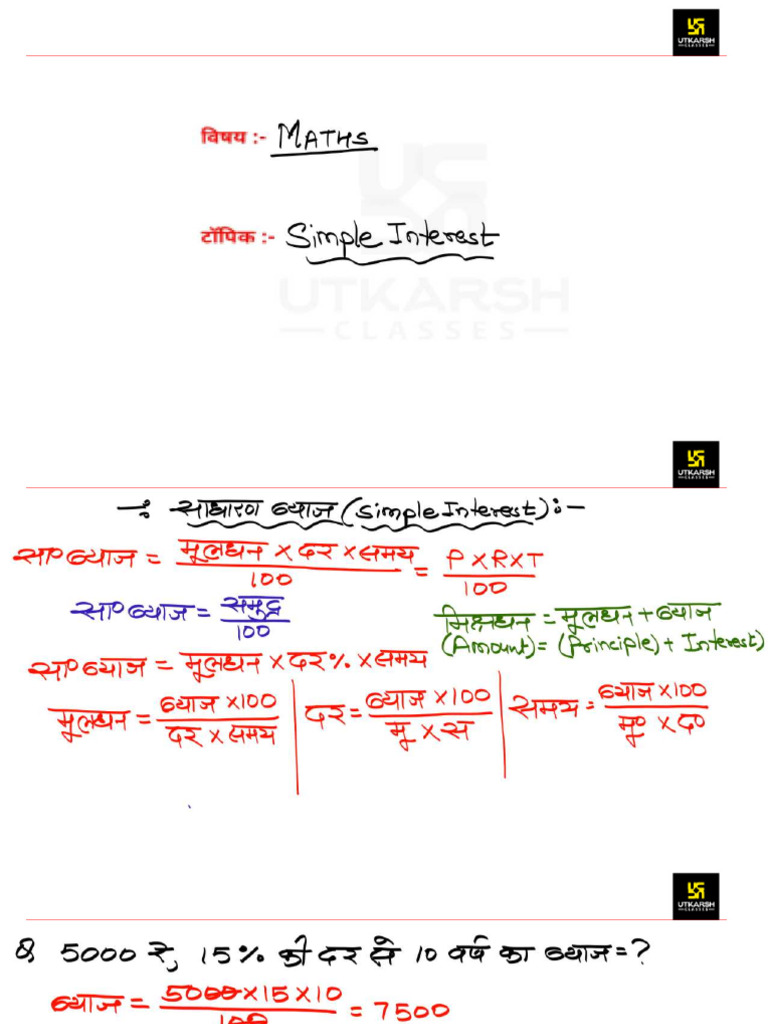 UTKARSH
CLASSES
विषय :- MATHS
टॉपिक :- Simple Interest
UTKARSH
CLASSES
UTKARSH
CLASSES
-: साधारण ब्याज (Simple Interest) :-
सा० ब्याज = मूलधन × दर × समय / 100 = P × R × T / 100
सा० ब्याज = समुद्र / 100
मिश्रधन = मूलधन + ब्याज
(Amount) = (Principle) + Interest)
सा० ब्याज = मूलधन × दर% × समय
मूलधन = ब्याज × 100 / दर × समय | दर = ब्याज × 100 / मू × स | समय = ब्याज × 100 / मू० × द०
UTKARSH
CLASSES
Q 5000 रु, 15% की दर से 10 वर्ष का ब्याज = ?
ब्याज = 5000 × 15 × 10 / 100 = 7500